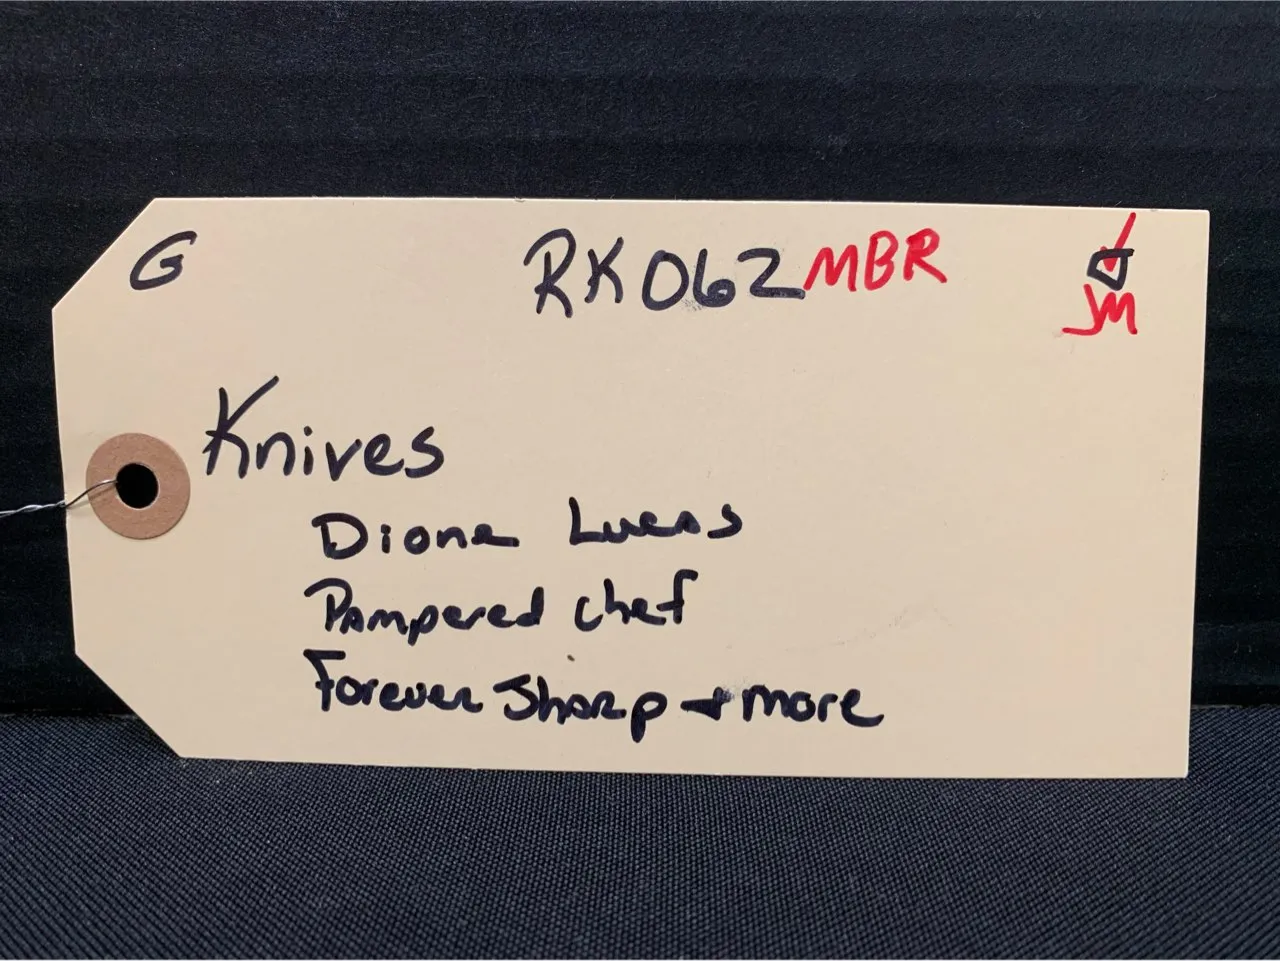 G RK062 MBR
JM
Knives
Dione Lucas
Pampered chef
Forever Sharp + more